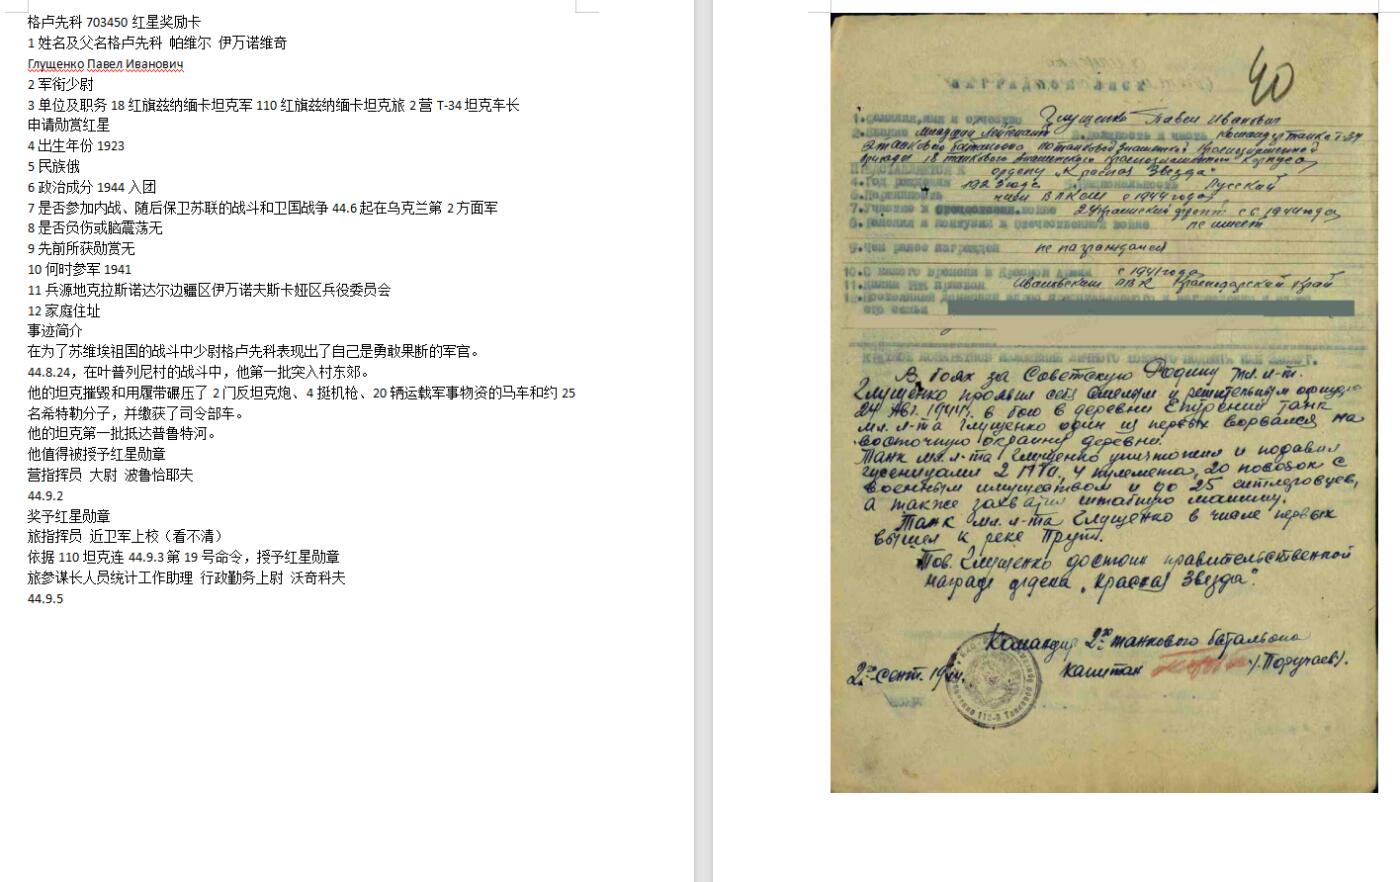 格卢先科 703450 红星奖励卡
1 姓名及父名格卢先科 帕维尔 伊万诺维奇
Глущенко Павел Иванович
2 军衔少尉
3 单位及职务 18 红旗兹纳缅卡坦克军 110 红旗兹纳缅卡坦克旅 2 营 T-34 坦克车长
申请勋赏红星
4 出生年份 1923
5 民族俄
6 政治成分 1944 入团
7 是否参加内战、随后保卫苏联的战斗和卫国战争 44.6 起在乌克兰第 2 方面军
8 是否负伤或脑震荡无
9 先前所获勋赏无
10 何时参军 1941
11 兵源地克拉斯诺达尔边疆区伊万诺夫斯卡娅区兵役委员会
12 家庭住址
事迹简介
在为了苏维埃祖国的战斗中少尉格卢先科表现出了自己是勇敢果断的军官。
44.8.24，在叶普列尼村的战斗中，他第一批突入村东郊。
他的坦克摧毁和用履带碾压了 2 门反坦克炮、4 挺机枪、20 辆运载军事物资的马车和约 25
名希特勒分子，并缴获了司令部车。
他的坦克第一批抵达普鲁特河。
他值得被授予红星勋章
营指挥员 大尉 波鲁恰耶夫
44.9.2
奖予红星勋章
旅指挥员 近卫军上校（看不清）
依据 110 坦克连 44.9.3 第 19 号命令，授予红星勋章
旅参谋长人员统计工作助理 行政勤务上尉 沃奇科夫
44.9.5
40
1. Фамилия, имя и отчество Глущенко Павел Иванович
2. Звание младший лейтенант 3. Должность и часть Командир танка Т-34
2 танкового батальона 110 танковой Знаменской Краснознаменной
бригады 18 танкового Знаменского Краснознаменного Корпуса
Представляется к ордену „Красная Звезда"
4. Год рождения 1923 года 5. Национальность Русский
6. Партийность член ВЛКСМ с 1944 года
7. Участие в отечествен. войне 2 Украинский фронт с 6.1944 года
8. Ранения и контузии в отечественной войне не имеет
9. Чем ранее награжден не награждался
10. С какого времени в Красной Армии с 1941 года
11. Каким РВК призван Ивановским РВК Краснодарский край
его семьи
Краткое конкретное изложение личного боевого подвига или заслуг.
В боях за Советскую Родину мл. л-т.
Глущенко проявил себя смелым и решительным офицер
24 Авг. 1944г. в бою в деревни Епурений танк
мл. л-та Глущенко один из первых ворвался на
восточную окраину деревни.
Танк мл. л-та Глущенко уничтожил и подавил
гусеницами 2 ПТО, 4 пулемета, 20 повозок с
военным имуществом и до 25 гитлеровцев,
а также захватил штабную машину.
Танк мл. л-та Глущенко в числе первых
вышел к реке Прут.
Тов. Глущенко достоин правительственной
награде ордена „Красная Звезда".
Командир 2го танкового батальона
2го сент. 1944. Капитан /Поручаев/.